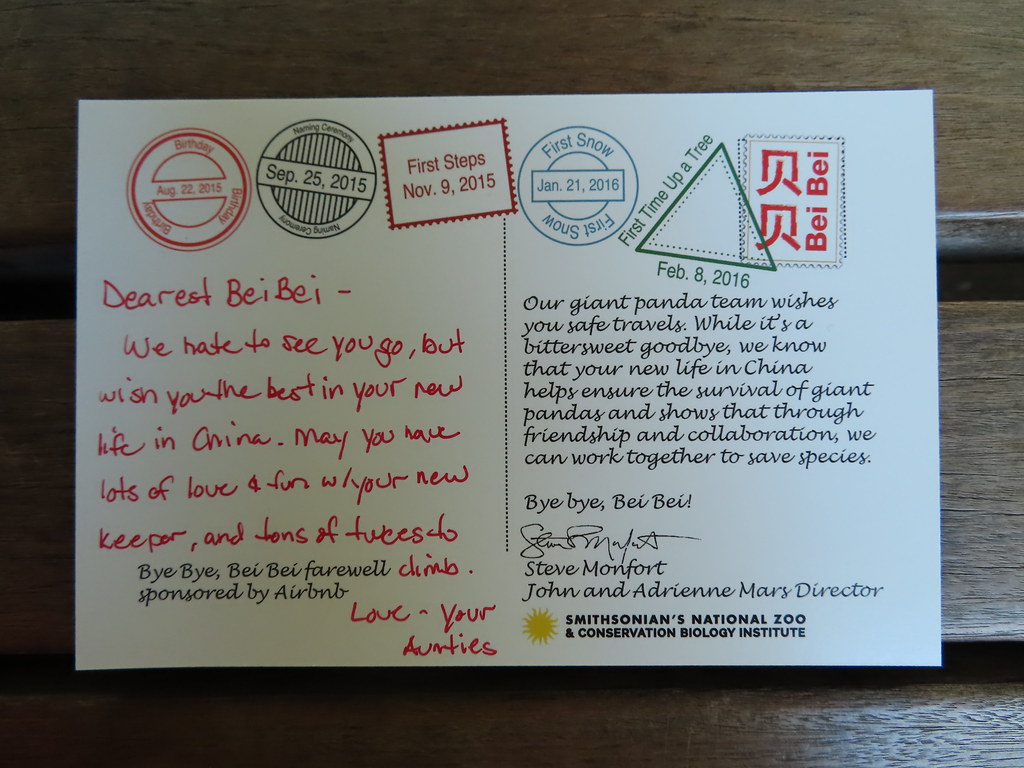 Birthday
Aug. 22, 2015
Birthday
Birthday
Naming Ceremony
Sep. 25, 2015
Naming Ceremony
First Steps
Nov. 9, 2015
First Snow
Jan. 21, 2016
First Snow
First Time Up a Tree
Feb. 8, 2016
贝贝
Bei Bei
Dearest Bei Bei -
We hate to see you go, but
wish you the best in your new
life in China. May you have
lots of love & fun w/your new
keeper, and tons of trees to
climb.
Love - Your
Aunties
Bye Bye, Bei Bei farewell
sponsored by Airbnb
Our giant panda team wishes
you safe travels. While it's a
bittersweet goodbye, we know
that your new life in China
helps ensure the survival of giant
pandas and shows that through
friendship and collaboration, we
can work together to save species.
Bye bye, Bei Bei!
Steve Monfort
John and Adrienne Mars Director
SMITHSONIAN'S NATIONAL ZOO
& CONSERVATION BIOLOGY INSTITUTE